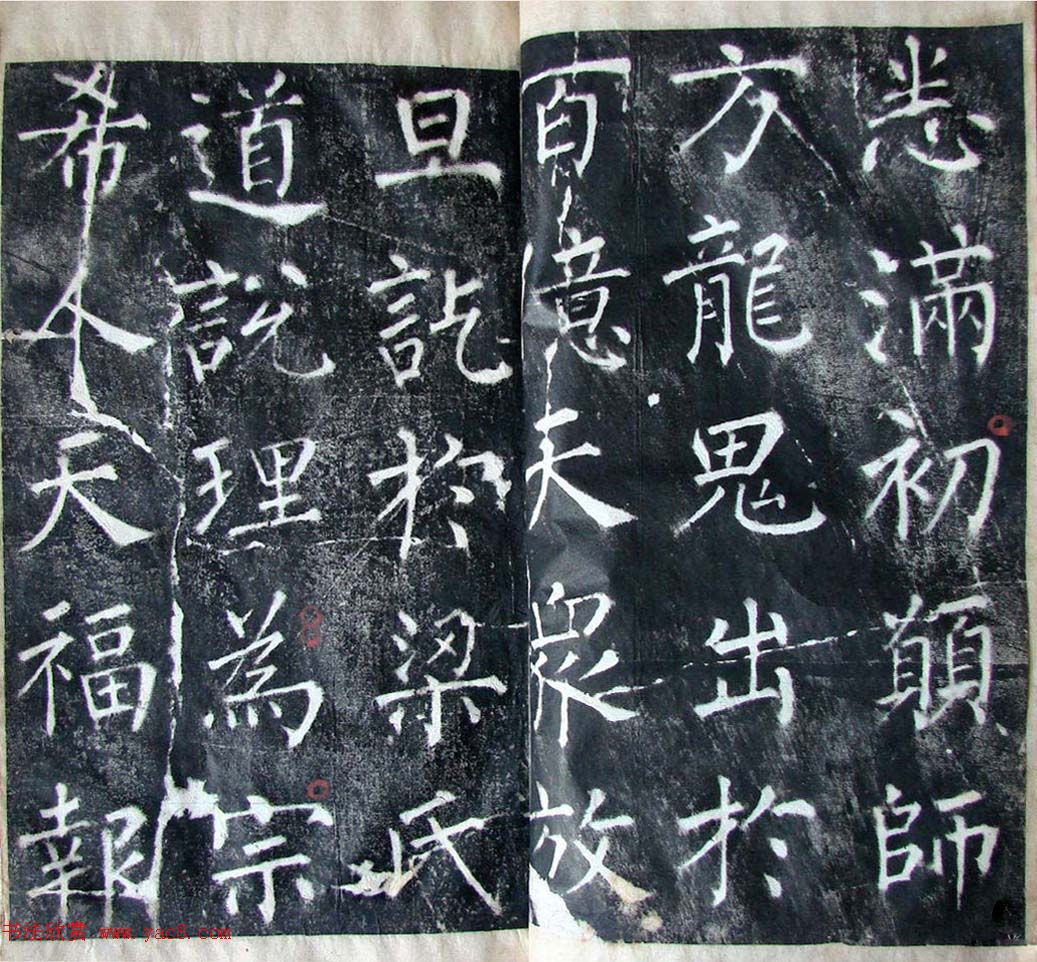 悉滿初顛師
方龍鬼出於
百億夫衆放
旦訖於梁氏
道說理為宗
希人天福報
书法欣赏 www.yac8.com